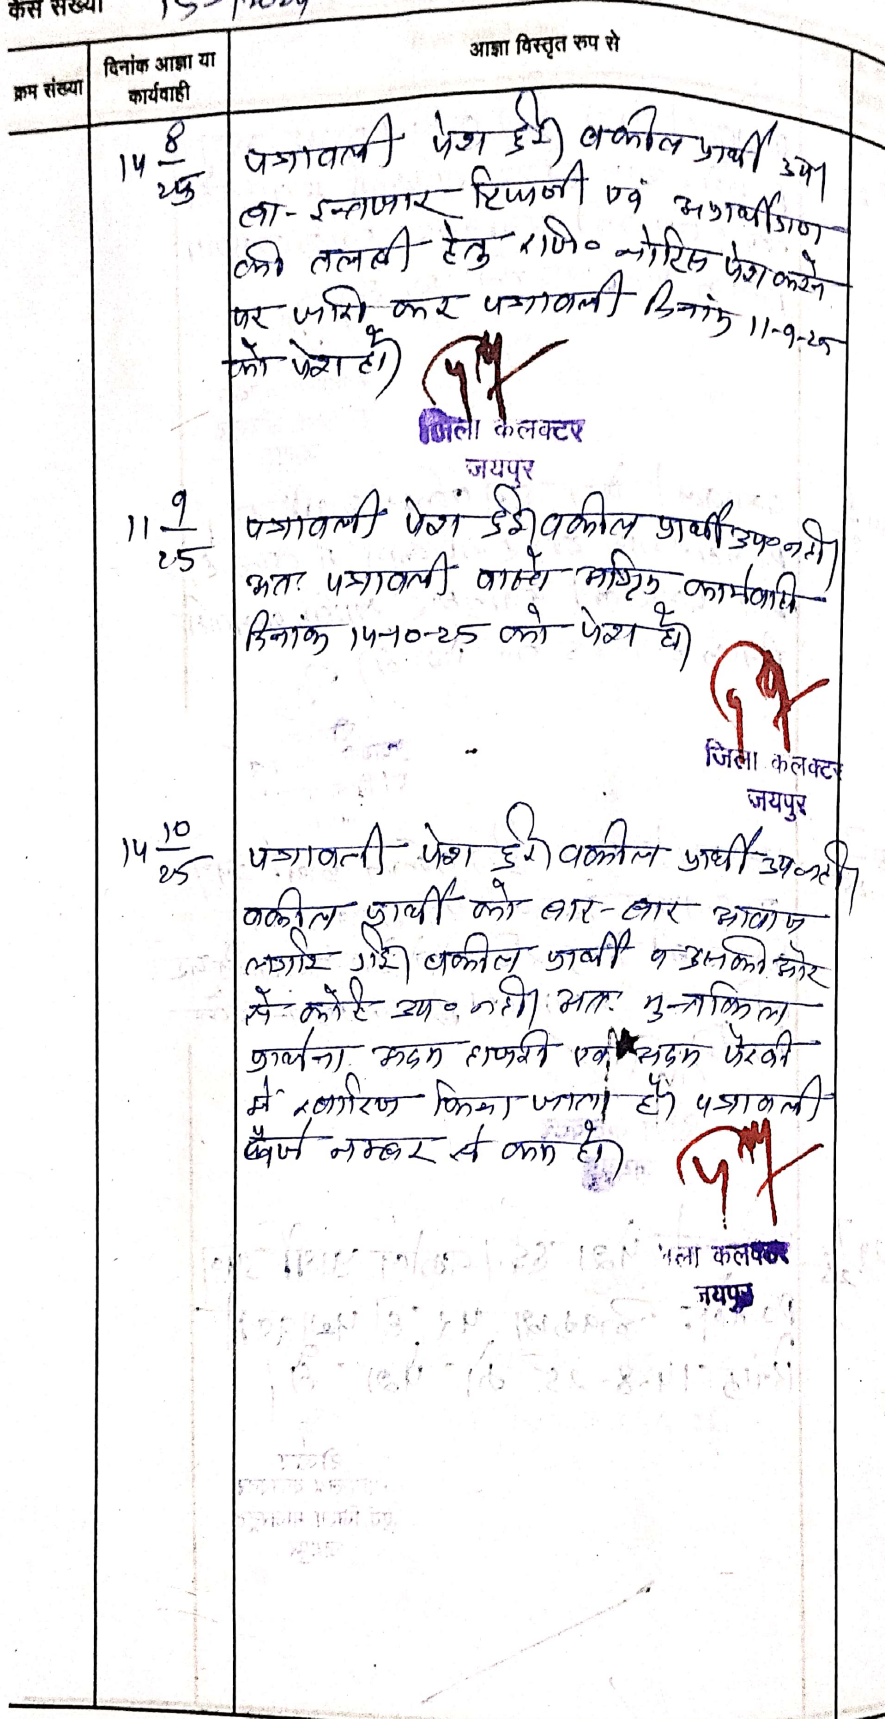 केस संख्या
क्रम संख्या
दिनांक आज्ञा या
कार्यवाही
आज्ञा विस्तृत रूप से
14 8/25
पत्रावली पेश हुई। वकील प्रार्थी उप।
बा-इन्तजार टिप्पणी एवं अप्रार्थीगण
की तलबी हेतु रजि० नोटिस पेश करने
पर जारी कर पत्रावली दिनांक 11-9-25
को पेश हो।
जिला कलक्टर
जयपुर
11 9/25
पत्रावली पेश हुई। वकील प्रार्थी उप० नही।
अतः पत्रावली वास्ते अग्रिम कार्यवाही
दिनांक 14-10-25 को पेश हो।
जिला कलक्टर
जयपुर
14 10/25
पत्रावली पेश हुई। वकील प्रार्थी उप० नही।
वकील प्रार्थी को बार-बार आवाज
लगाई गई। वकील प्रार्थी व उसकी ओर
से कोई उप० नही। अतः मुन्तकिल
प्रार्थना अदम हाजरी एवं अदम पैरवी
में खारिज किया जाता है। पत्रावली
नम्बर से कम हो।
जिला कलक्टर
जयपुर